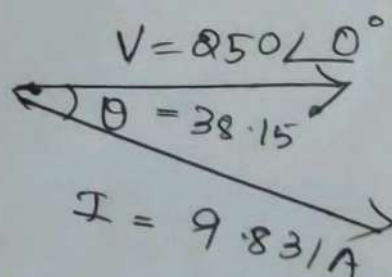 V = 250∠0°
θ = 38.15
I = 9.831A